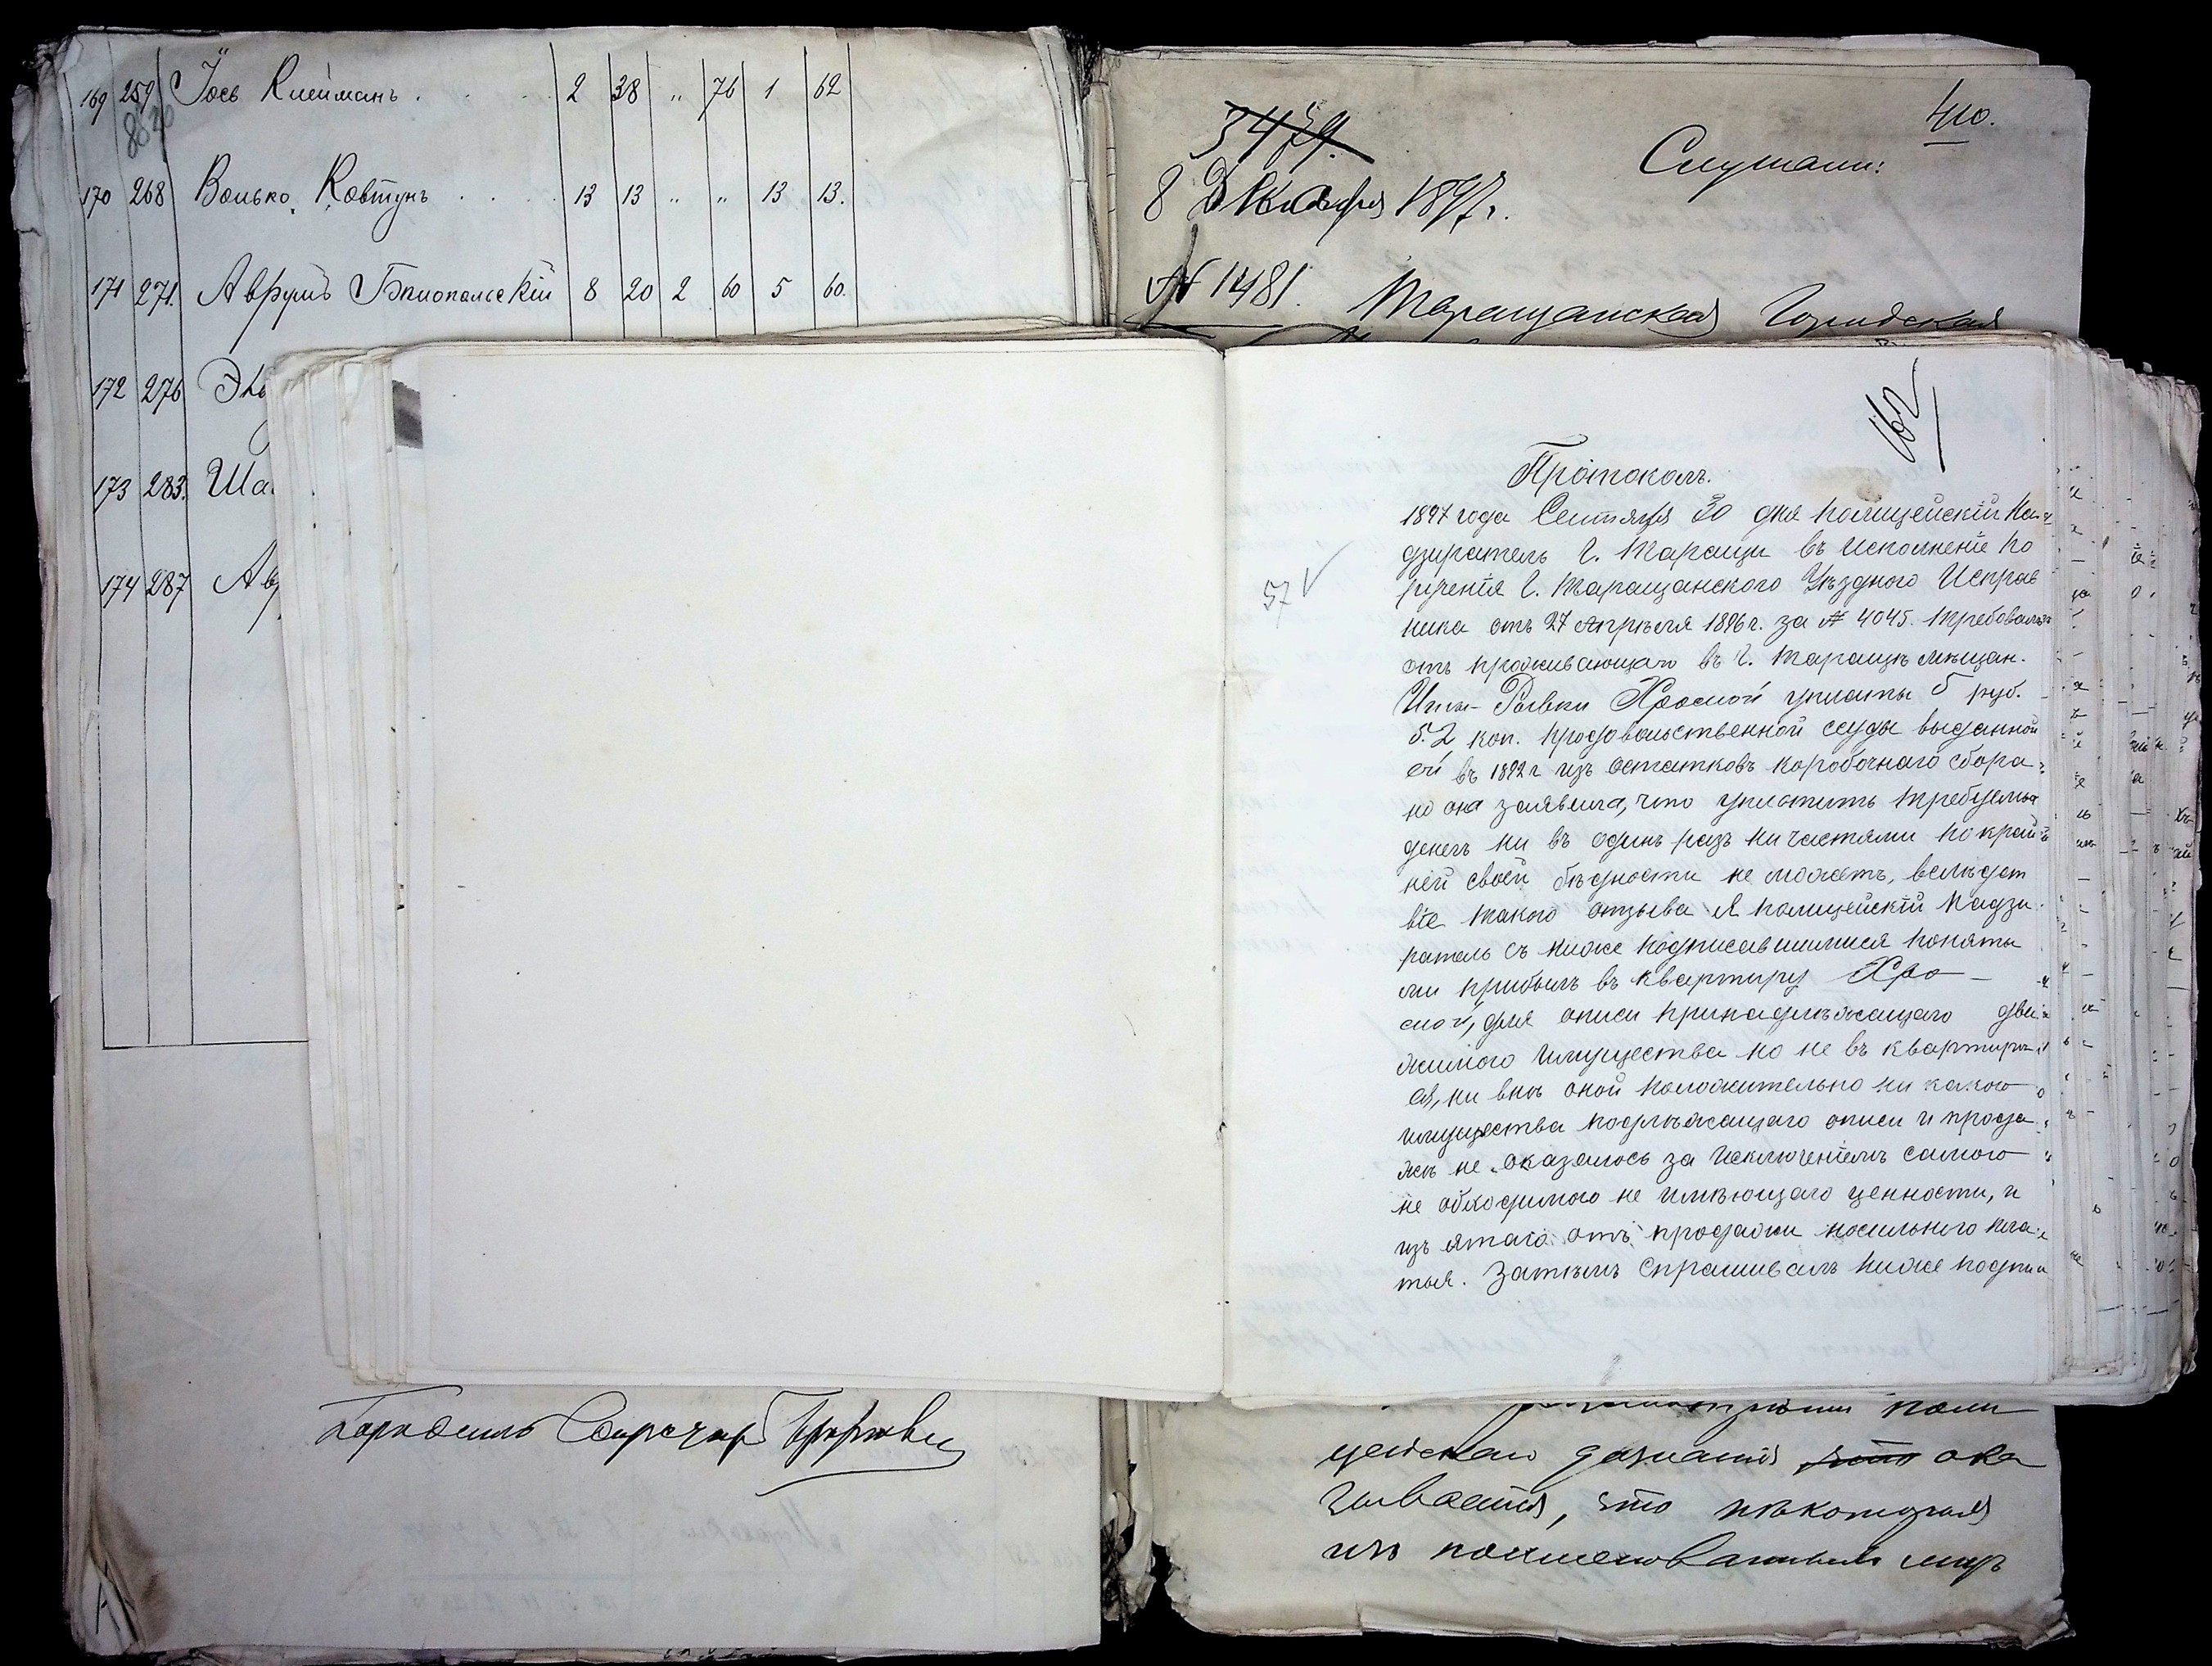 169 259 Іось Клейманъ . . . 2 38 „ 76 1 62
170 268 Волько Ковтунъ . . . 13 13 „ „ 13 13.
171 271. Аврумъ Бялопольскій 8 20 2 60 5 60.
172 276
173 283. Ша
174 287 Ав
410.
Слушали:
8 Декабря 1897 г.
№ 1481.
Таращанская Городская
162
Протоколъ.
57 V
1897 года Сентября 30 дня полицейскій На
дзиратель г. Таращи въ исполненіе по
рученія г. Таращанского Уѣздного Исправ
ника отъ 27 Апрѣля 1896 г. за № 4045. требовалъ
отъ проживающаго въ г. Таращѣ мѣщан.
Ривки Хросной уплаты 5 руб.
52 коп. продовольственной ссуды выданной
ей въ 1892 г изъ остатковъ коробочнаго сбора
но она заявила, что уплатить требуемых
денегъ ни въ одинъ разъ ни частями по край
ней своей бѣдности не можетъ, вслѣдст
віе такого отзыва я полицейскій Надзи
ратель съ ниже подписавшимися поняты
ми прибылъ въ квартиру Хро-
сной, для описи принадлѣжащаго дви
жимого имущества но не въ квартирѣ
ея, ни внѣ оной положительно ни какого
имущества подлѣжащаго описи и прода
жѣ не оказалось за исключеніемъ самого
не обходимого не имѣющаго ценности, и
изъ ятаго отъ продажи носильного пла
тья. Затѣмъ спрашивалъ ниже подпи
поли
цейскаго дознанія ока
зывается, что нѣкоторыя
изъ поименованныхъ лицъ